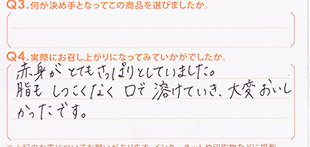 Q3.何が決め手となってこの商品を選びましたか。
Q4.実際にお召し上がりになってみていかがでしたか。
赤身が とてもさっぱりとしていました。
脂も しつこくなく 口で 溶けていき、大変おいし
かったです。